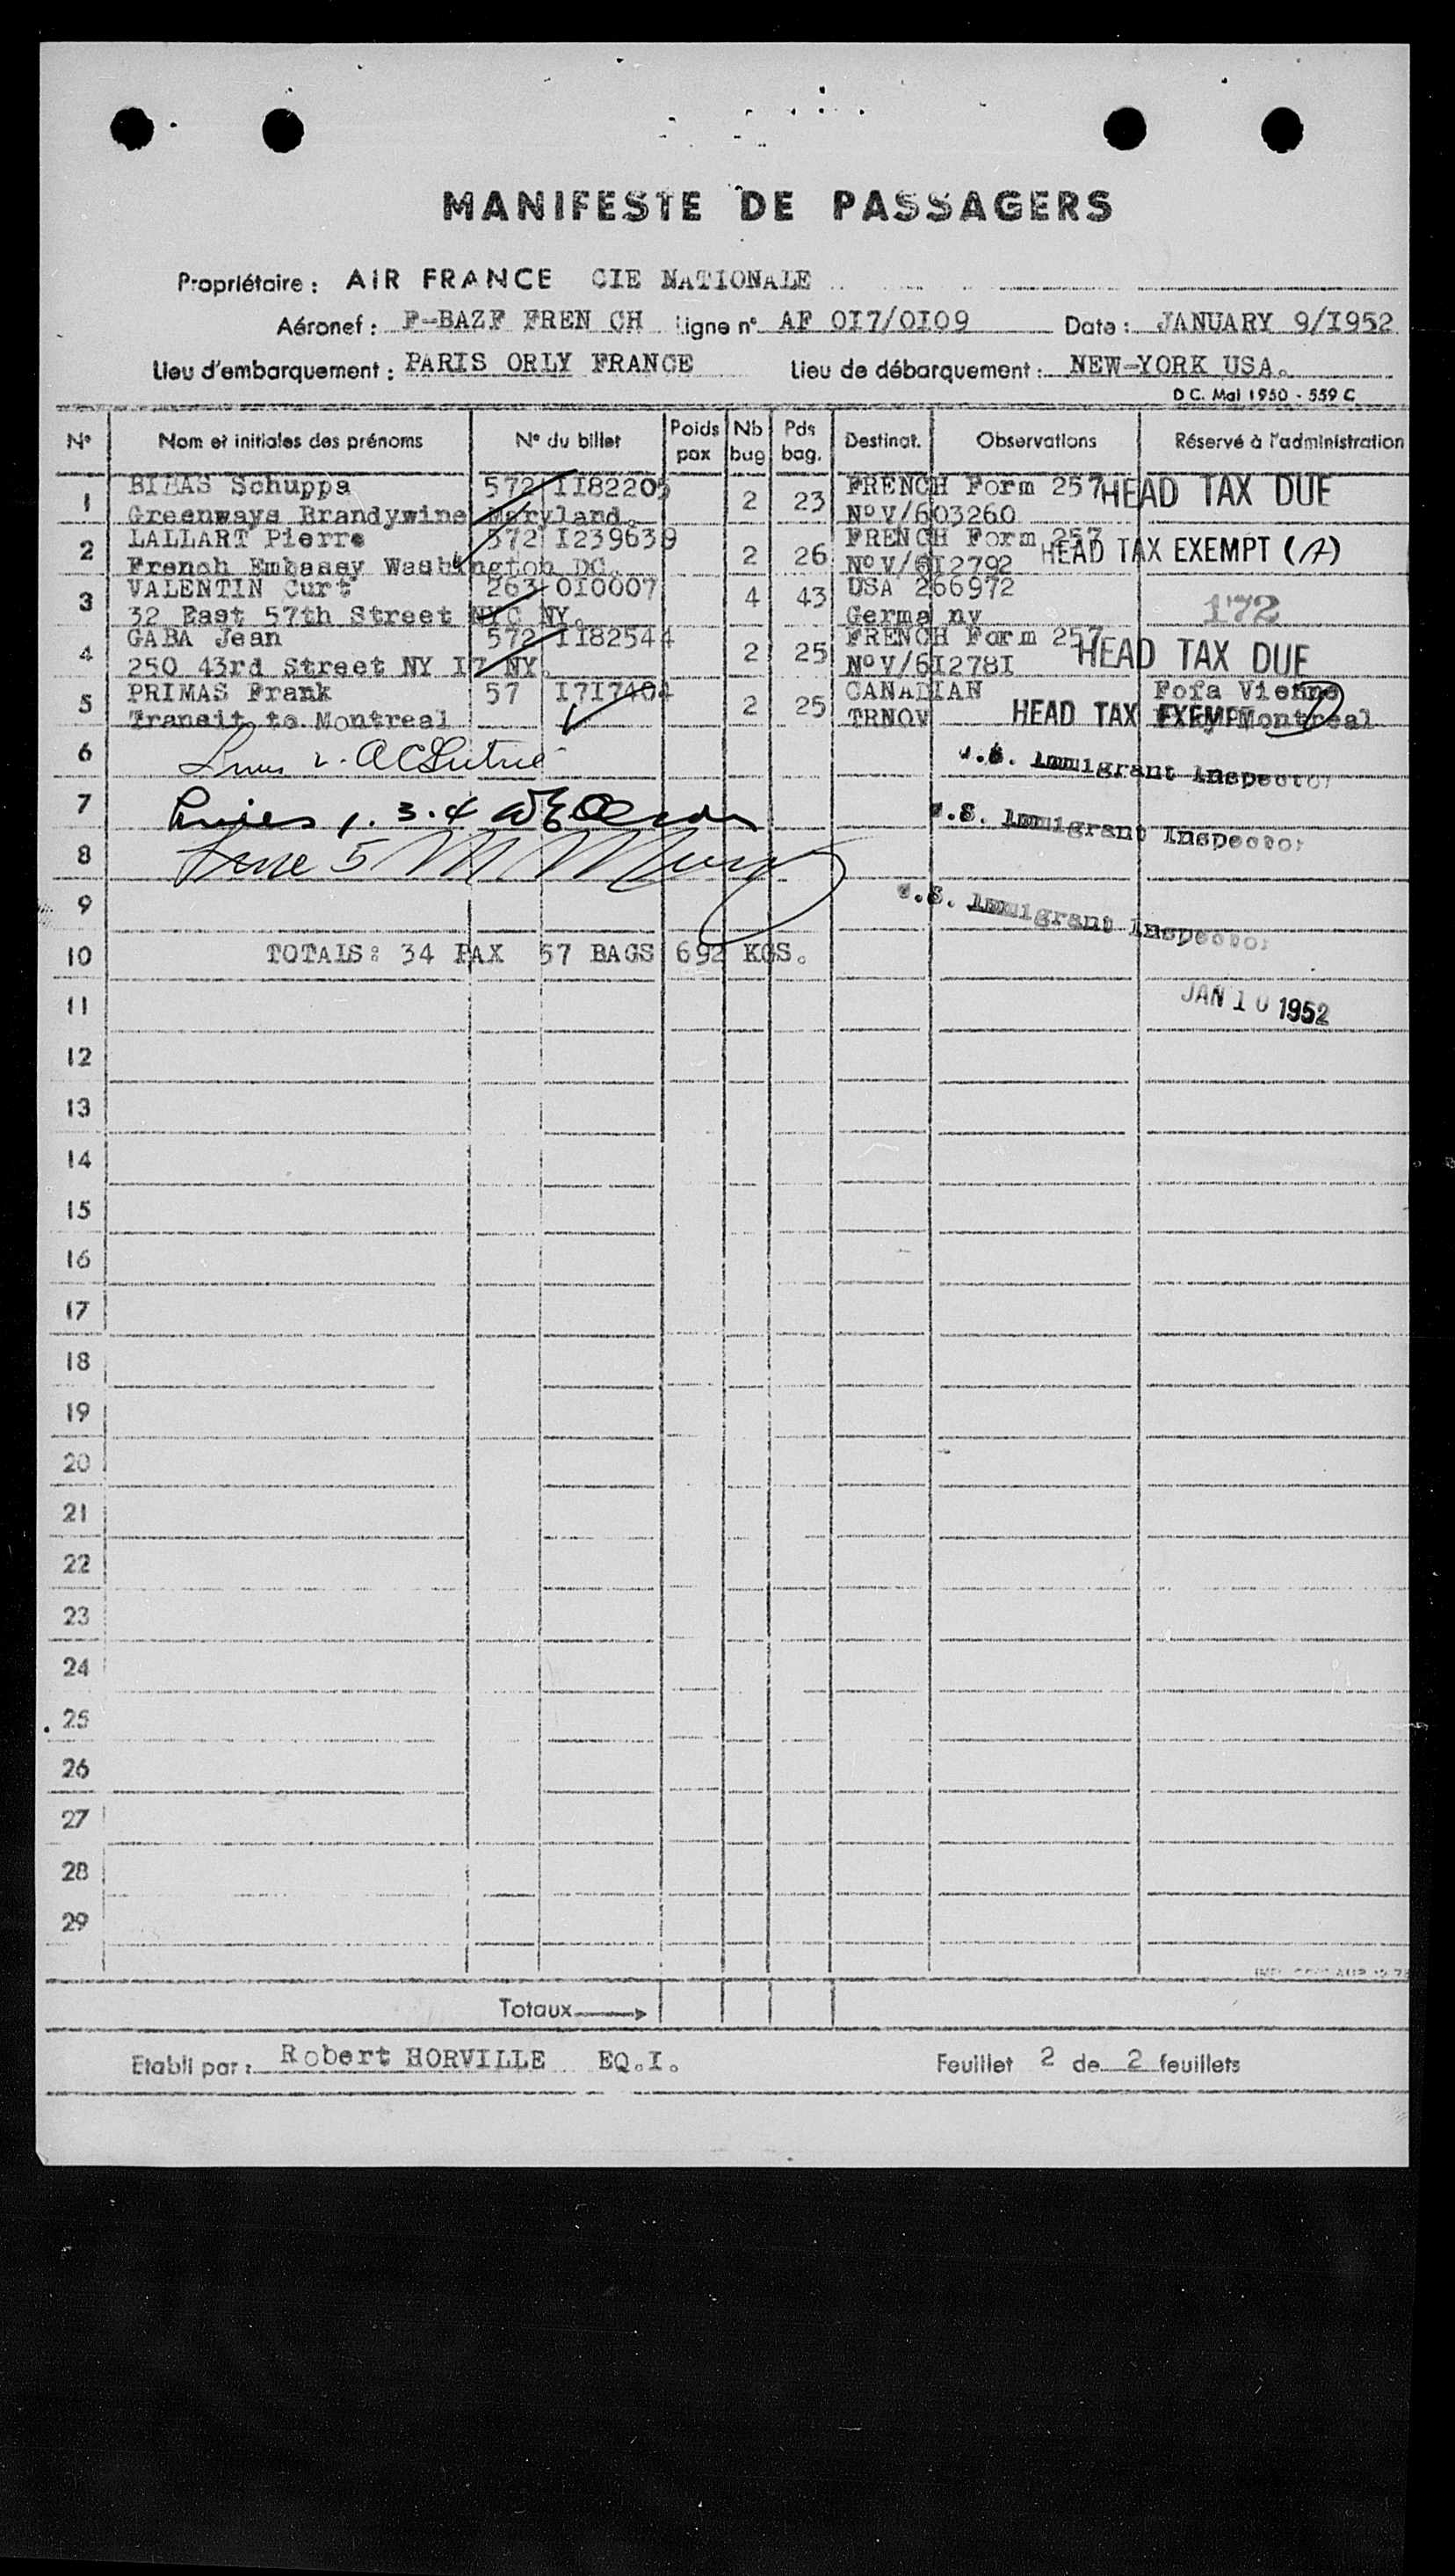 MANIFESTE DE PASSAGERS
Propriétaire : AIR FRANCE CIE NATIONALE
Aéronef : F-BAZF FREN CH Ligne n° AF OI7/OI09 Date : JANUARY 9/I952
Lieu d'embarquement : PARIS ORLY FRANCE Lieu de débarquement : NEW-YORK USA.
D C. Mai 1950 - 559 C
N° Nom et initiales des prénoms N° du billet Poids pax Nb bag Pds bag. Destinat. Observations Réservé à l'administration
1 BIBAS Schuppa 572 II82205 2 23 FRENCH Form 257 HEAD TAX DUE
Greenways Brandywine Maryland. N° V/603260
2 LALLART Pierre 572 I239639 2 26 FRENCH Form 257 HEAD TAX EXEMPT (A)
French Embassy Washington DC. N° V/6I2792
3 VALENTIN Curt 263 0I0007 4 43 USA 266972
32 East 57th Street NYC NY. Germa ny 172
4 GABA Jean 572 II82544 2 25 FRENCH Form 257 HEAD TAX DUE
250 43rd Street NY I7 NY. N° V/6I278I
5 PRIMAS Frank 57 I7I7404 2 25 CANADIAN Fofa Vienne
Transit to Montreal TRNOV HEAD TAX EXEMPT Montreal
6 2.
U.S. Immigrant Inspector
7 Lines 1. 3. 4
U.S. Immigrant Inspector
8 Line 5
9
U.S. Immigrant Inspector
10 TOTALS: 34 PAX 57 BAGS 692 KGS.
11 JAN 10 1952
12
13
14
15
16
17
18
19
20
21
22
23
24
25
26
27
28
29
Totaux
Etabli par : Robert HORVILLE EQ.I. Feuillet 2 de 2 feuillets